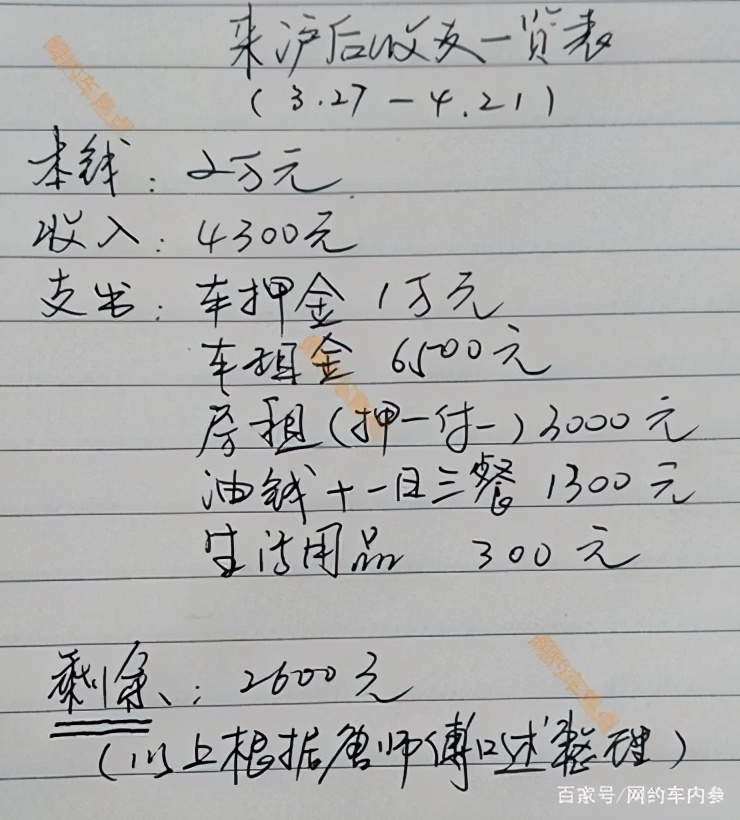 来沪后收支一览表
(3.27-4.21)
本钱：2万元
收入：4300元
支出：车押金 1万元
车租金 6500元
房租(押一付一)3000元
油钱+一日三餐 1300元
生活用品 300元
剩余：2600元
(以上根据唐师傅口述整理)
百家号/网约车内参